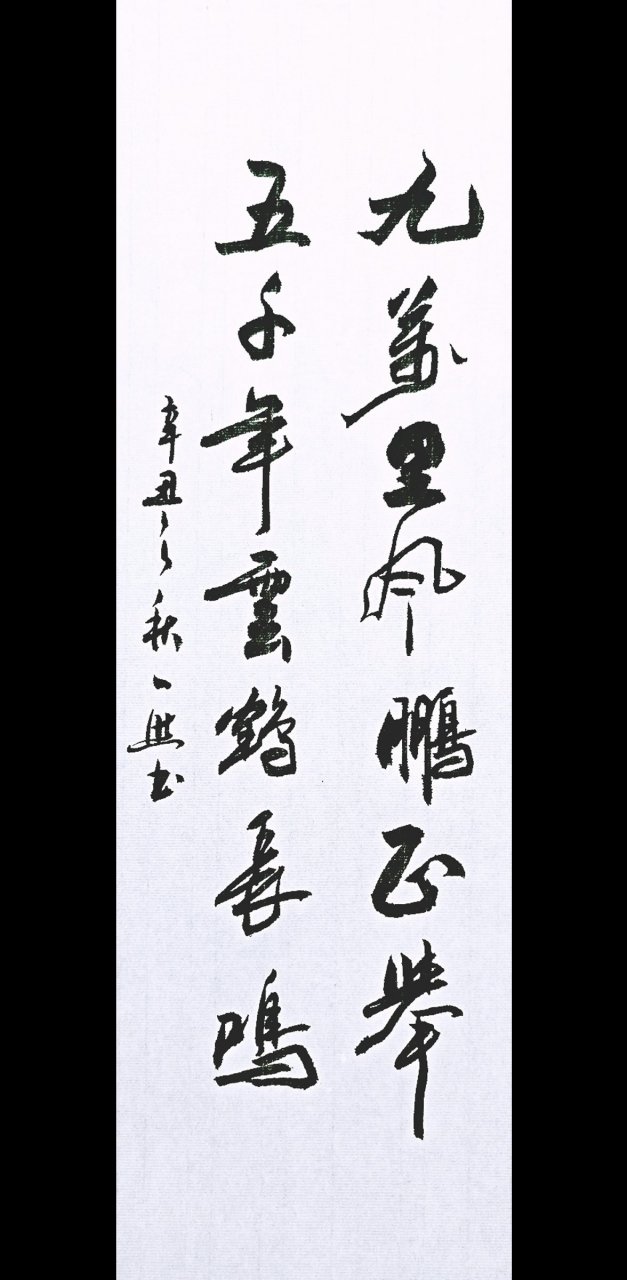 九萬里風鵬正舉
五千年雲鶴長鳴
辛丑之秋一興書